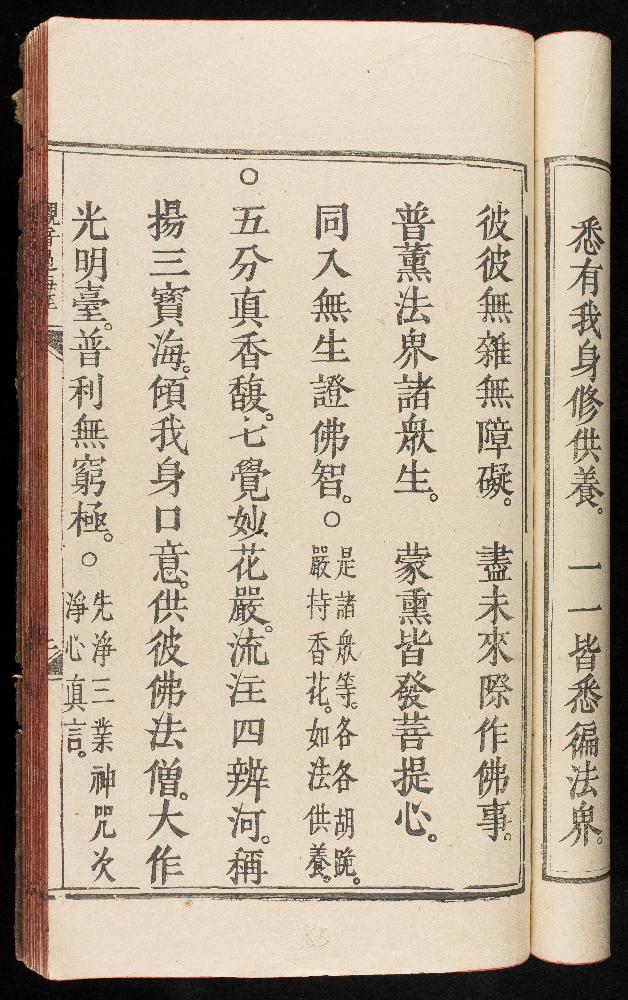 悉有我身修供養。　一一皆悉徧法界。
彼彼無雜無障礙。　盡未來際作佛事。
普薰法界諸衆生。　蒙熏皆發菩提心。
同入無生證佛智。○
是諸衆等。各各胡跪。
嚴持香花。如法供養。
○五分真香馥。七覺妙花嚴。流注四辨河。稱
揚三寶海。傾我身口意。供彼佛法僧。大作
光明臺。普利無窮極。○
先淨三業神咒次
淨心真言。
85